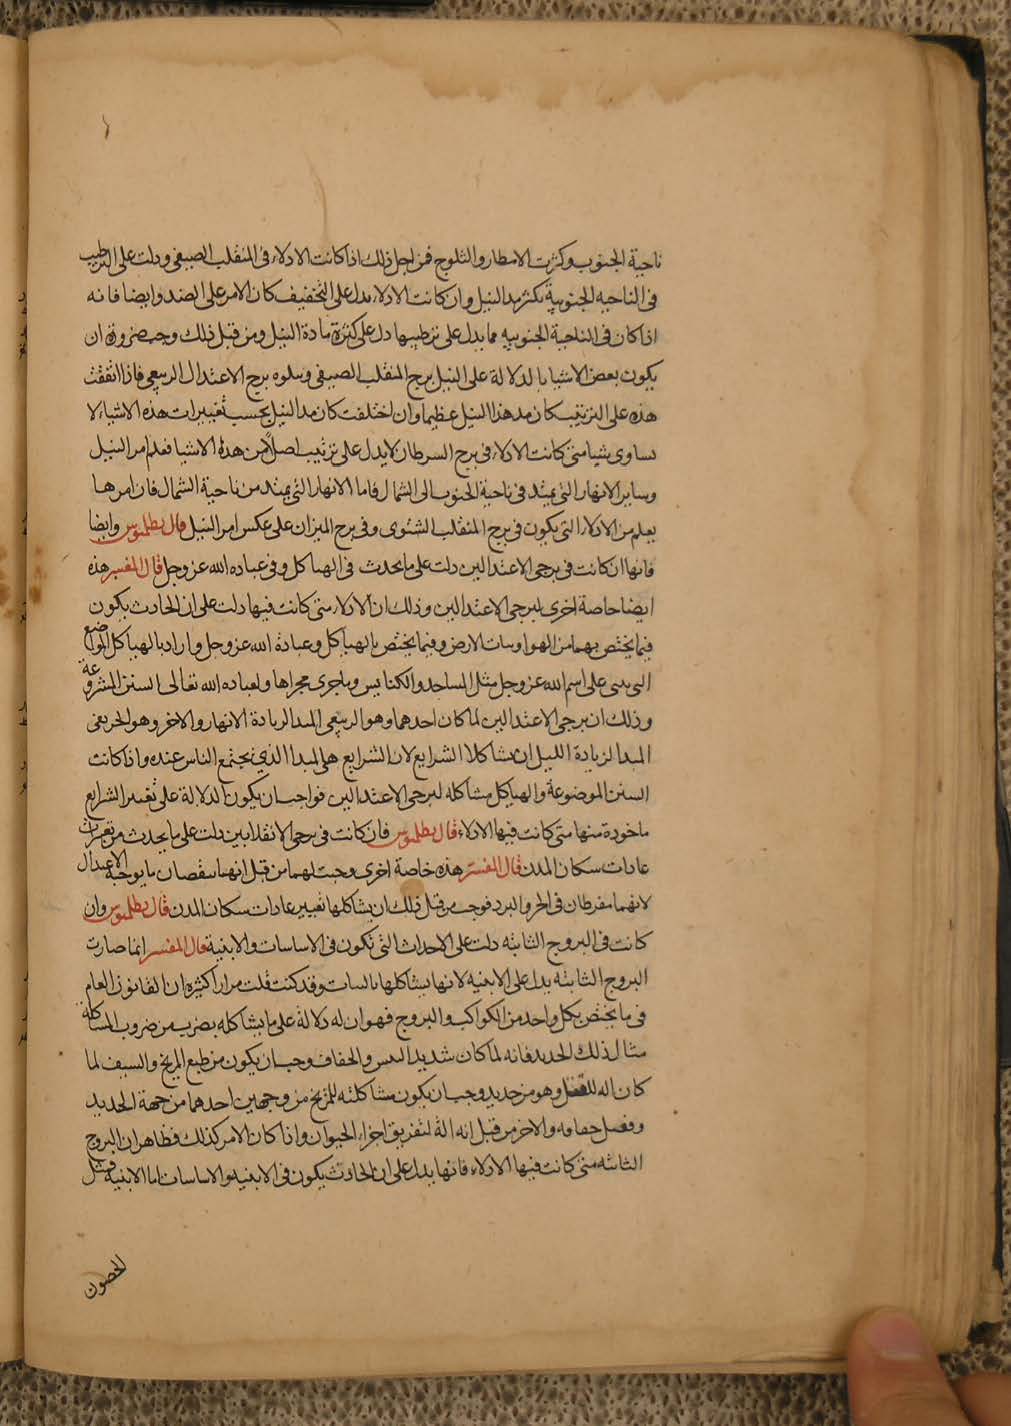 ناحية الجنوب وكثرت الامطار والثلوج فمن اجل ذلك اذا كانت الادلاء فى المنقلب الصيفى ودلت على الترطيب
فى الناحيه الجنوبية يكثر مد النيل وان كانت الادلاء يدل على التخفيف كان الامر على الضد وايضا فانه
اذا كان فى الناحية الجنوبيه مما يدل على ترطيبها دل على كثرة مادة النيل ومن قبل ذلك وجب ضرورة ان
يكون بعض الاشيا بالدلالة على النيل برج المنقلب الصيفى ويتلوه برج الاعتدال الربيعى فاذا اتفقت
هذه على الترتيب كان مد هذا النيل عظيما وان اختلفت كان مد النيل بحسب تغييرات هذه الاشياء لا
يساوى شيا متى كانت الادلاء فى برج السرطان لا يدل على ترتيب اصلا من هذه الاشيا فعلم امر النيل
وساير الانهار التى يمتد فى ناحية الجنوب الى الشمال فاما الانهار التى يمتد من ناحية الشمال فان امرها
يعلم من الادلاء التى يكون فى برج المنقلب الشتوى وفى برج الميزان على عكس امر النيل قال بطلميوس وايضا
فانها ان كانت فى برجى الاعتدالين دلت على ما يحدث فى الهياكل وفى عباده الله عز وجل قال المفسر هذه
ايضا خاصة اخرى لبرجى الاعتدالين وذلك ان الادلاء متى كانت فيها دلت على ان الحادث يكون
فيما يختص بهما من الهوا ونبات الارض وفيما يختص بالهياكل وعبادة الله عز وجل واراد بالهياكل المواضع
التى بنى على اسم الله عز وجل مثل المساجد والكنايس وما جرى مجراها ولعباده الله تعالى السنن المشروعة
وذلك ان برجى الاعتدالين لما كان احدهما وهو الربيعى المبدا لزيادة الانهار والاخر وهو الخريفى
المبدا لزيادة الليل ان يشاكلا الشرايع لان الشرايع هى المبدا الذى يجتمع الناس عنده واذا كانت
السنن الموضوعة والهياكل مشاكله لبرجى الاعتدالين فواجب ان يكون الدلالة على تغيير الشرايع
ماخوذة منها متى كانت فيها الادلاء قال بطلميوس فان كانت فى برجى الانقلابين دلت على ما يحدث من تغيرات
عادات سكان المدن قال المفسر هذه خاصة اخرى وجبت لهما من قبل انهما ينقصان ما يوجبه الاعتدال
لانهما مفرطان فى الحر والبرد فوجب من قبل ذلك ان يشاكلها تغيير عادات سكان المدن قال بطلميوس وان
كانت فى البروج الثابته دلت على الاحداث التى تكون فى الاساسات والابنية قال المفسر انما صارت
البروج الثابته يدل على الابنيه لانها يشاكلها بالثبات وقد كنت قلت مرارا كثيرة ان القانون العام
فى ما يختص بكل واحد من الكواكب والبروج فهو ان له دلالة على ما يشاكله بضرب من ضروب المشاكلة
مثال ذلك الحديد فانه لما كان شديد اليبس والجفاف وجب ان يكون من طبع المريخ والسيف لما
كان اله للقتل وهو من حديد وجب ان يكون مشاكلته للمريخ من وجهين احدهما من جهة الحديد
وفضل جفافه والاخر من قبل انه الة لتفريق اجزاء الحيوان واذا كان الامر كذلك فظاهر ان البروج
الثابته متى كانت فيها الادلاء فانها يدل على ان الحادث يكون فى الابنيه والاساسات اما الابنية فمثل
الحصون